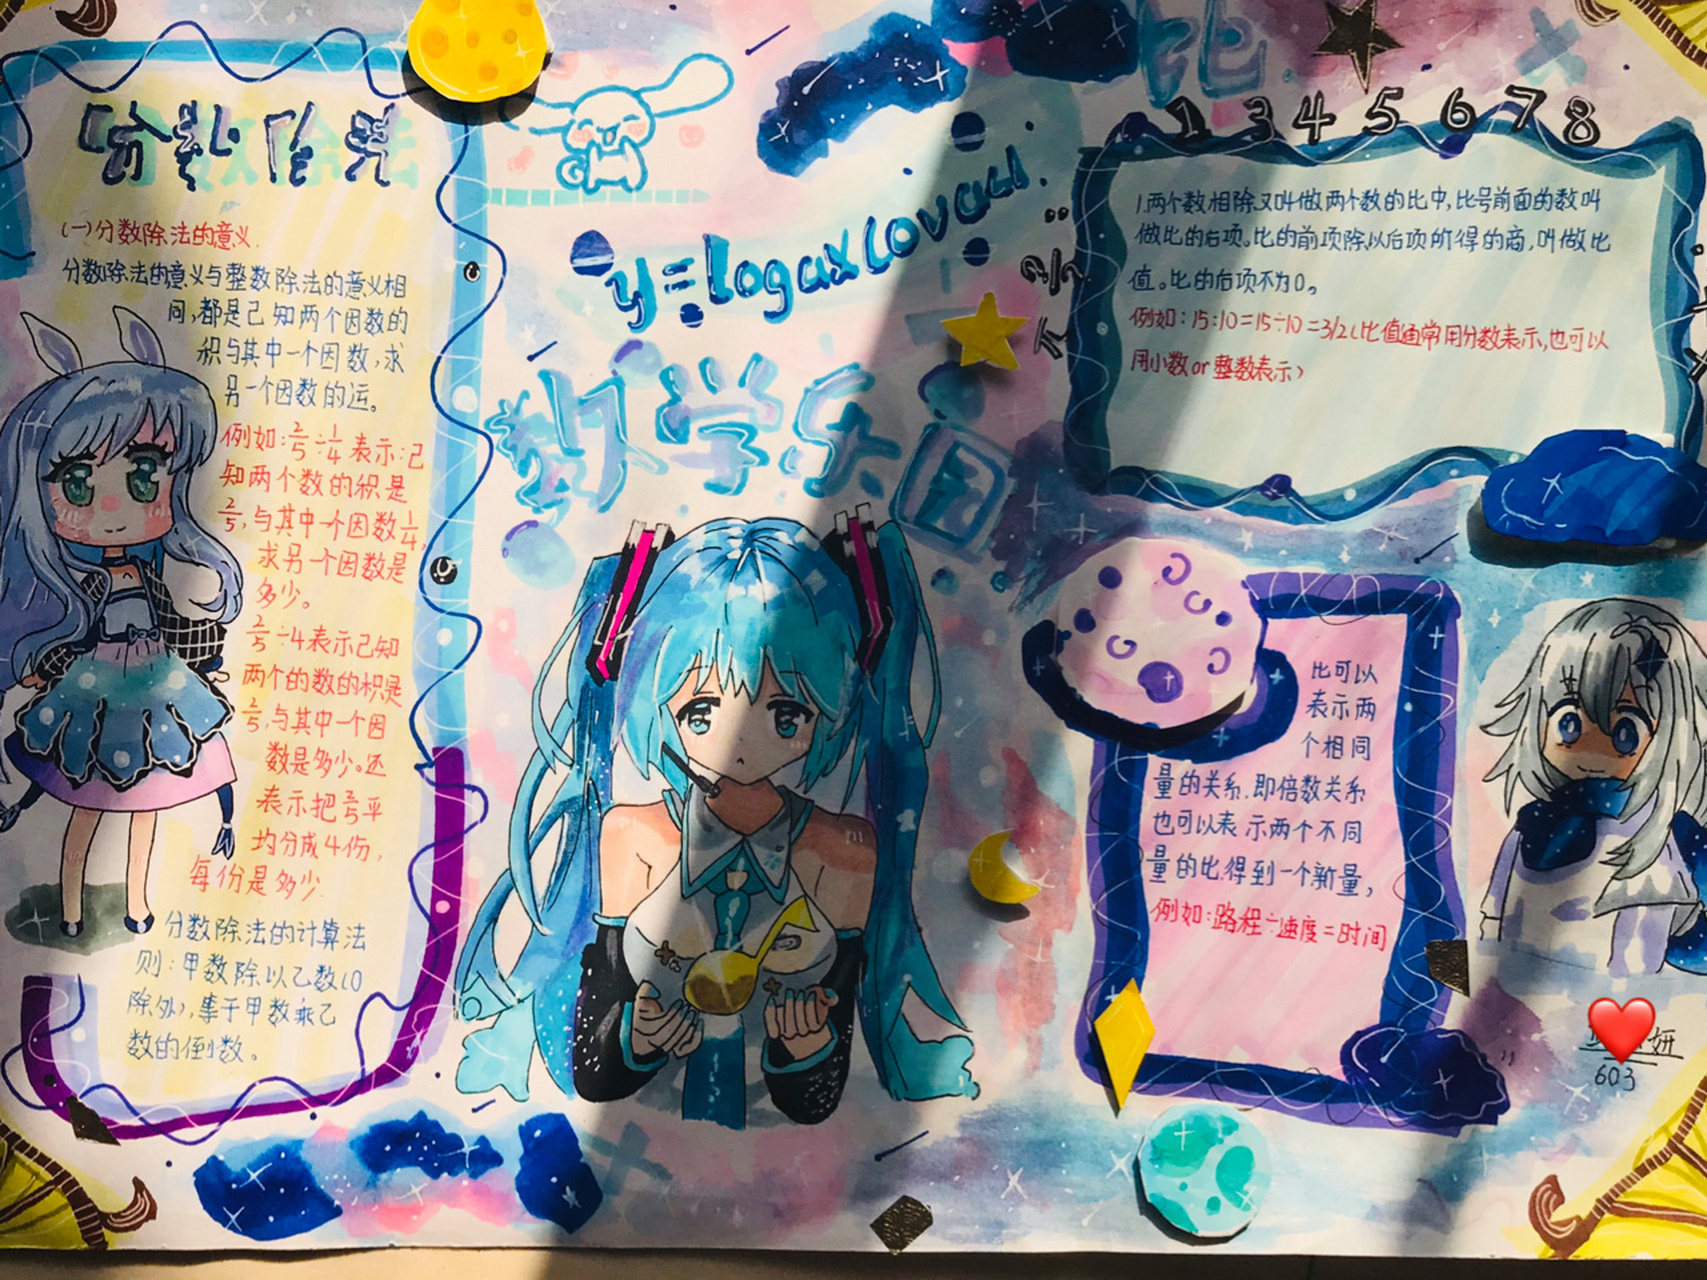 分数除法
(一)分数除法的意义.
分数除法的意义与整数除法的意义相
同,都是已知两个因数的
积与其中一个因数,求
另一个因数的运。
例如:2/5÷1/4表示:已
知两个数的积是
2/5,与其中一个因数1/4,
求另一个因数是
多少。
2/5÷4表示已知
两个的数的积是
2/5,与其中一个因
数是多少。还
表示把2/5平
均分成4份,
每份是多少.
分数除法的计算法
则:甲数除以乙数(0
除外),等于甲数乘乙
数的倒数。
y=logax(ovaal.
数学乐园
比.
1 3 4 5 6 7 8
π
1.两个数相除又叫做两个数的比中,比号前面的数叫
做比的后项。比的前项除以后项所得的商,叫做比
值。比的后项不为0。
例如:15:10=15÷10=3/2(比值通常用分数表示,也可以
用小数or整数表示)
比可以
表示两
个相同
量的关系.即倍数关系
也可以表示两个不同
量的比.得到一个新量,
例如:路程÷速度=时间
妍
603